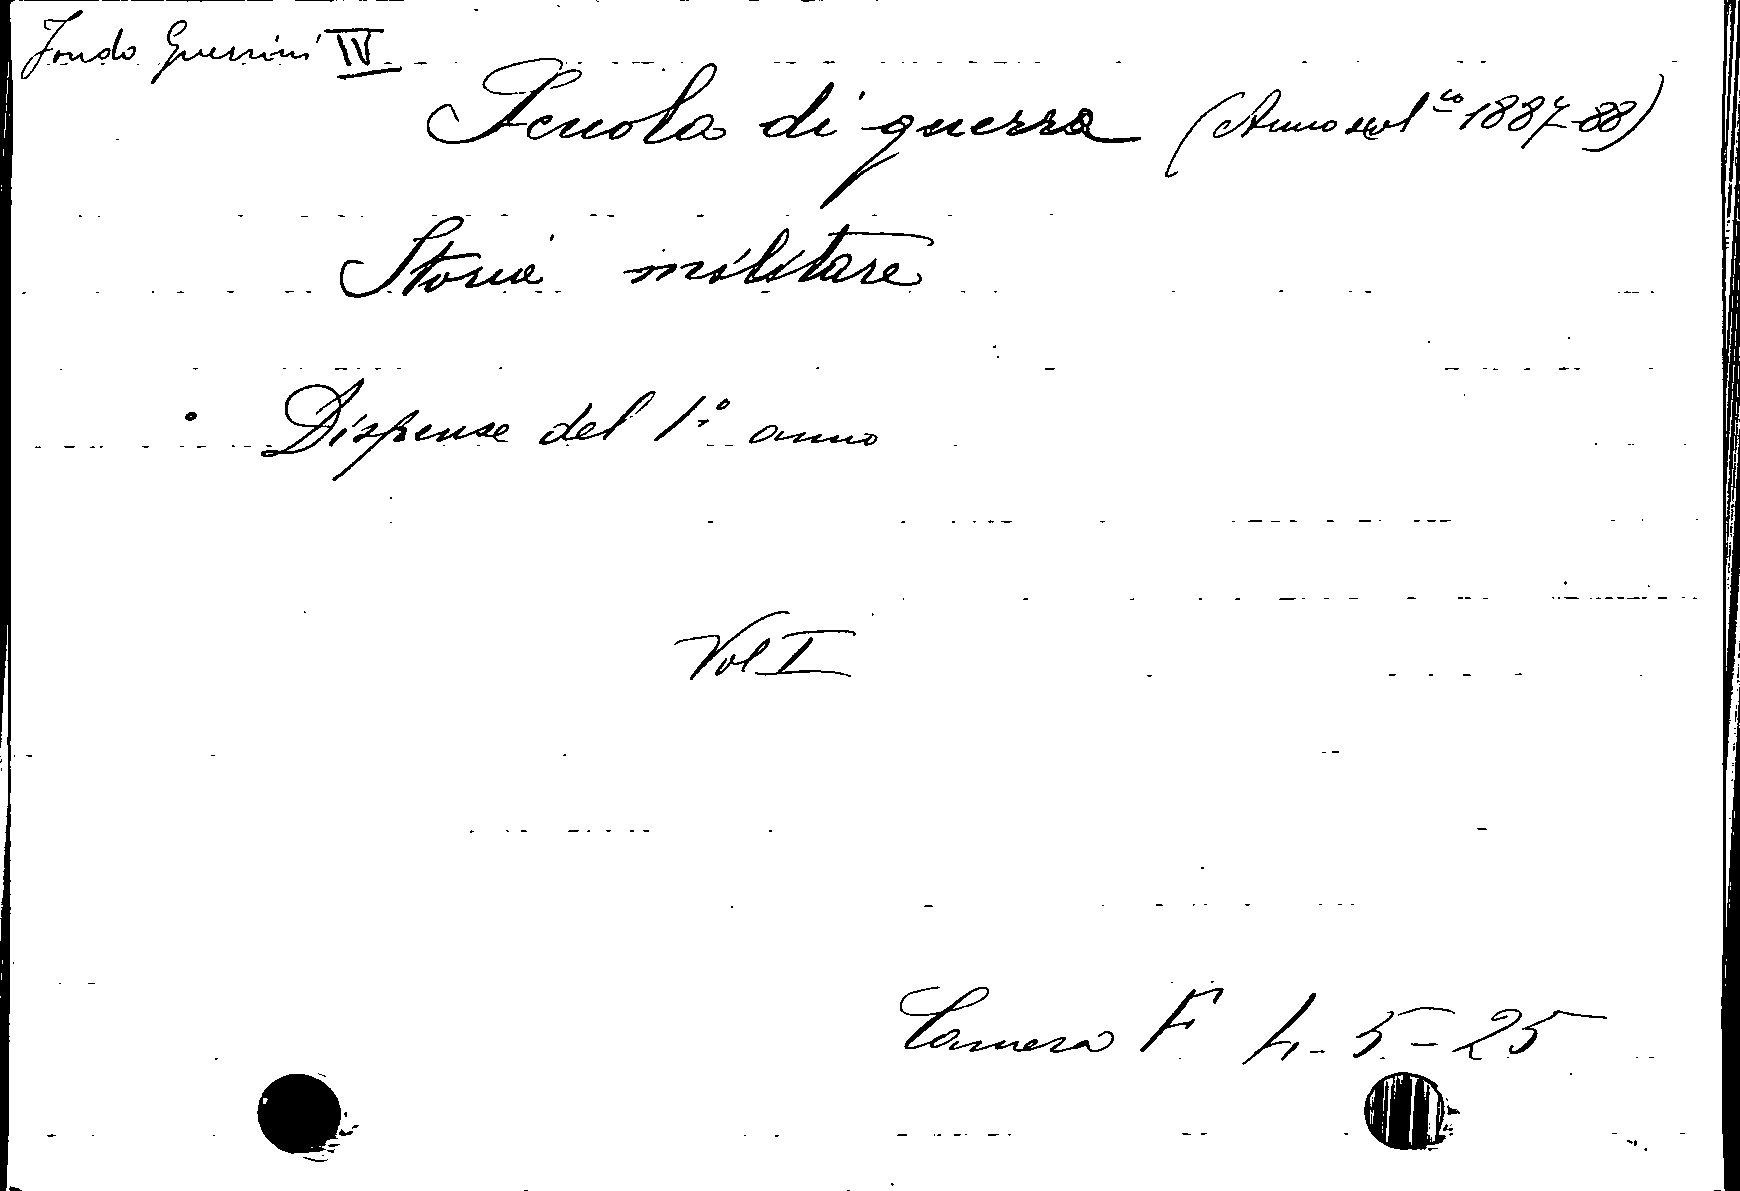 Fondo Guerrini IV
Scuola di guerra (Anno scolco 1887-88)
Storia militare
Dispense del 1º anno
Vol I
Camera F 4-5-25